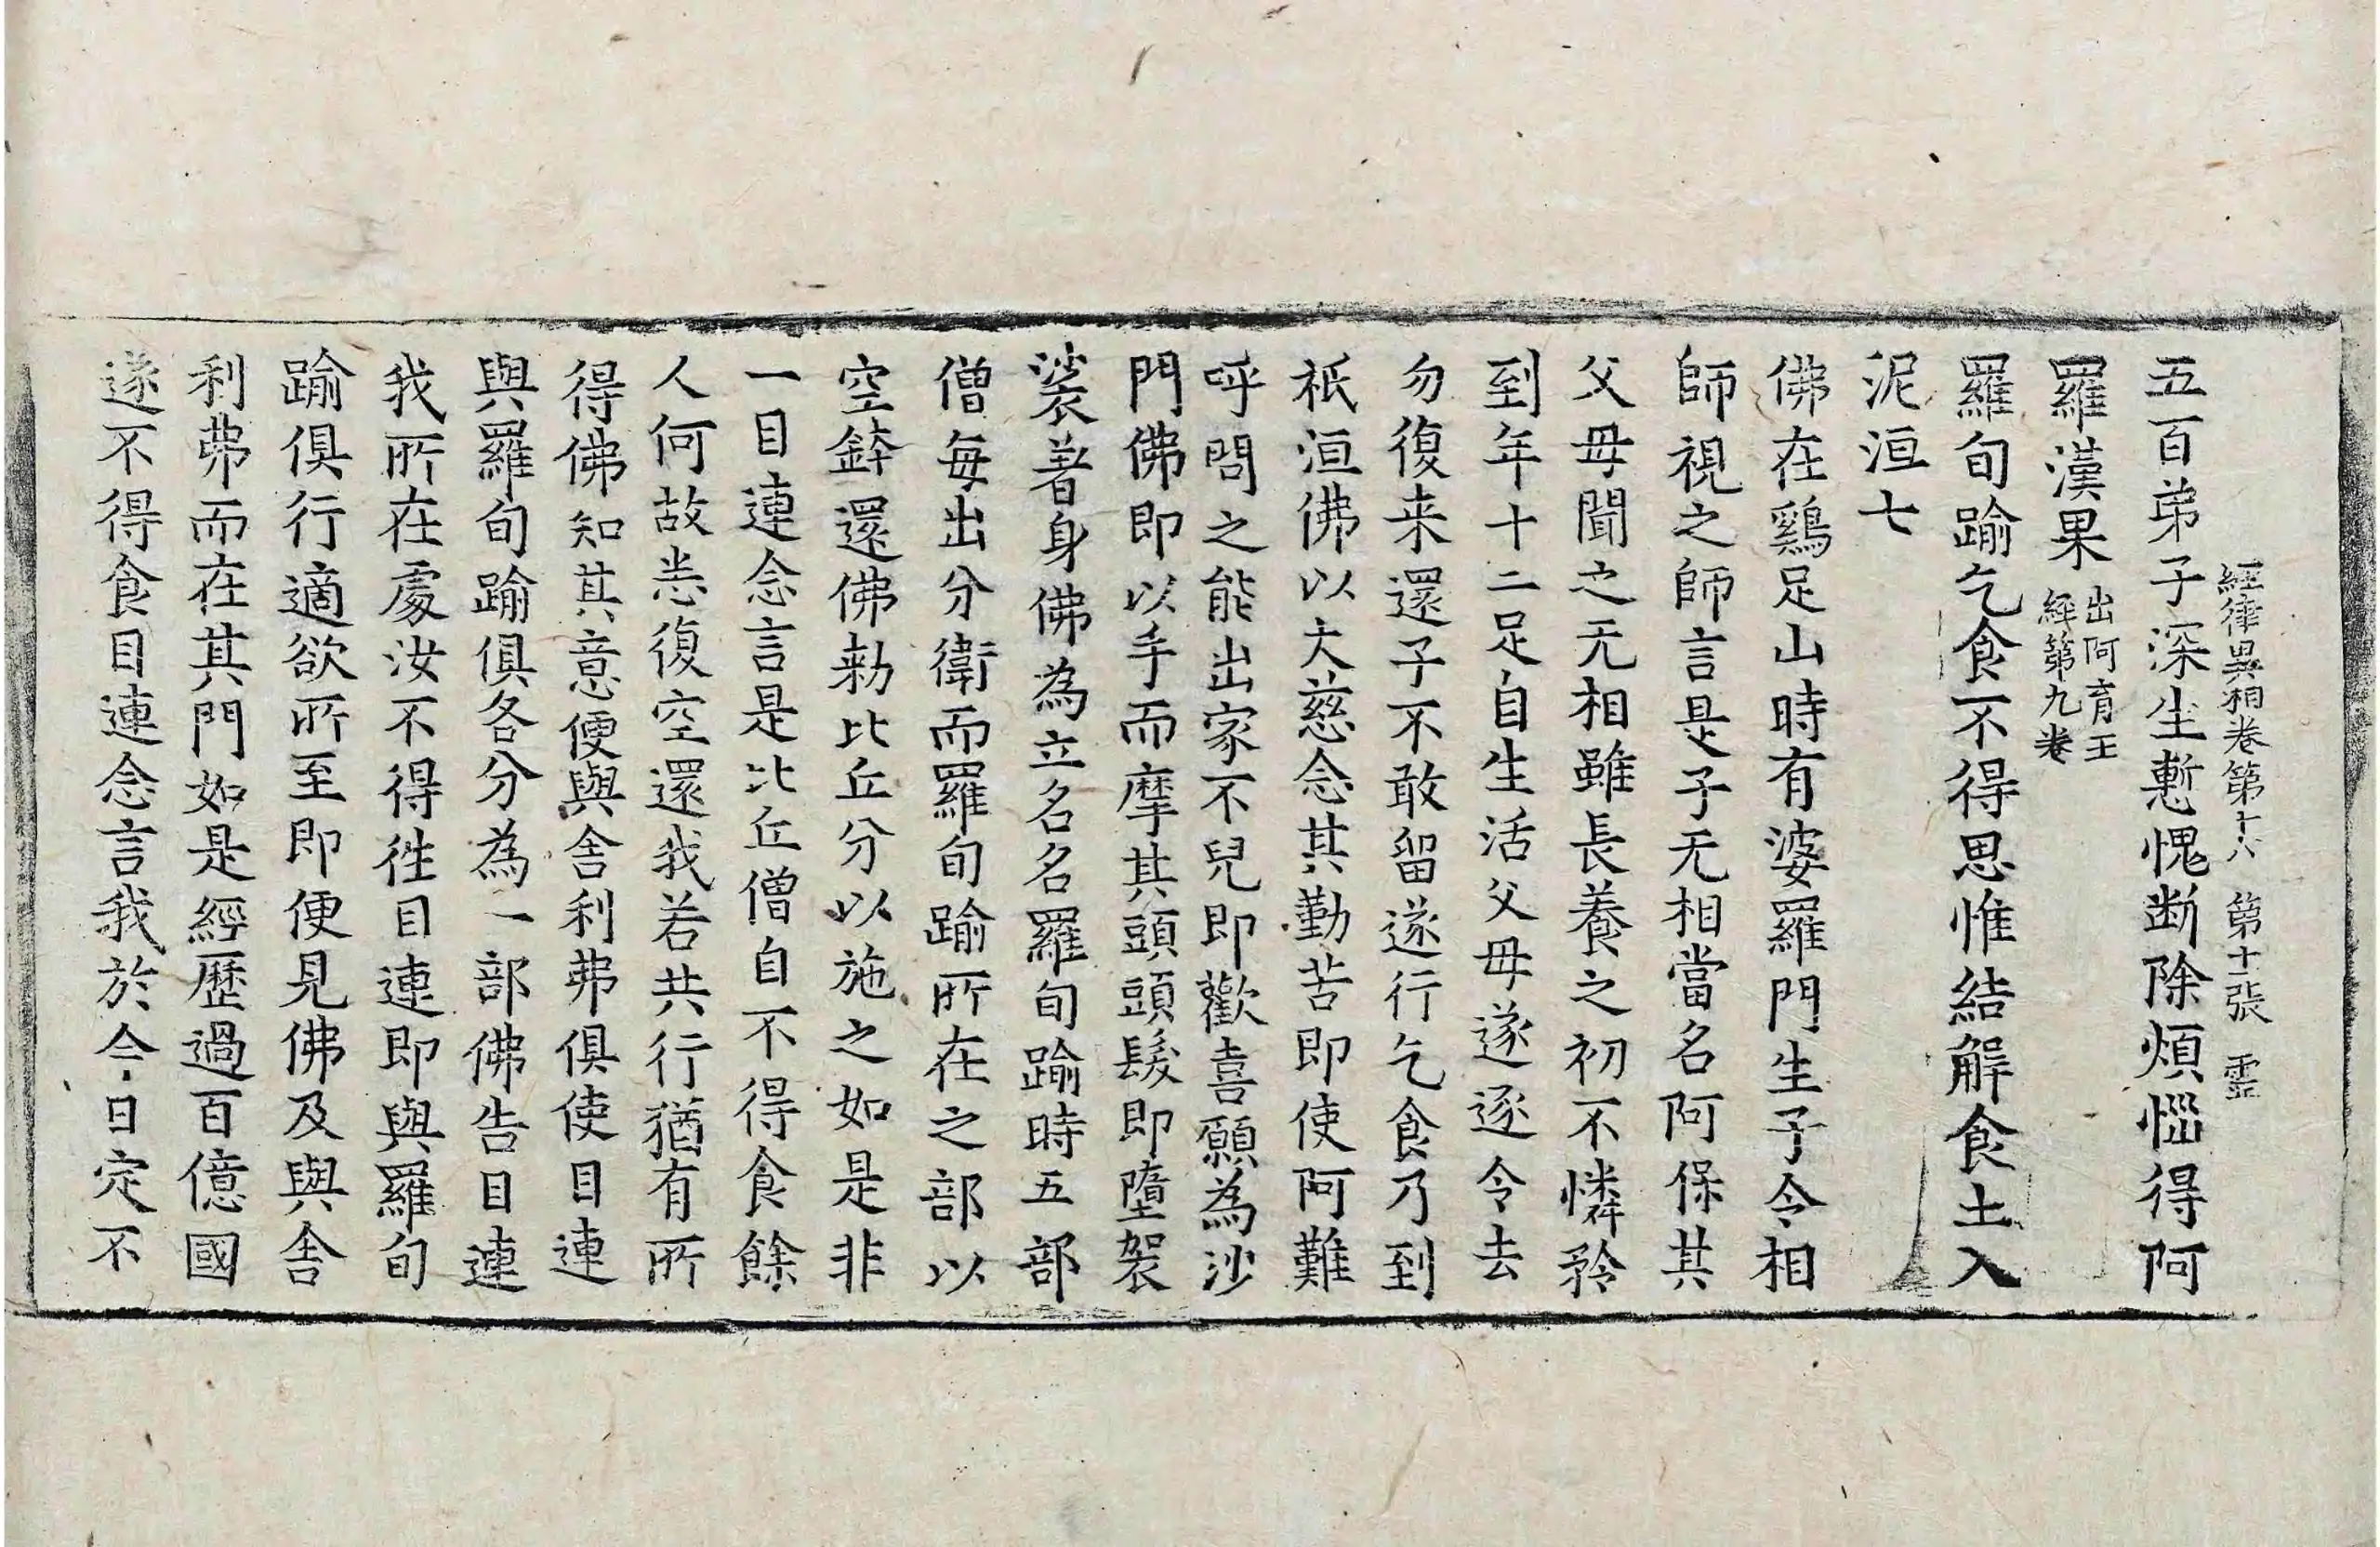 經律異相卷第十八 第十一張 靈
五百弟子深生慙愧断除煩惱得阿
羅漢果出阿育王經第九卷
羅旬踰乞食不得思惟結解食土入
泥洹七
佛在鷄足山時有婆羅門生子令相
師視之師言是子无相當名阿保其
父母聞之无相雖長養之初不憐矜
到年十二足自生活父母遂逐令去
勿復来還子不敢留遂行乞食乃到
祇洹佛以大慈念其勤苦即使阿難
呼問之能出家不兒即歡喜願為沙
門佛即以手而摩其頭頭髮即墮袈
裟著身佛為立名名羅旬踰時五部
僧每出分衛而羅旬踰所在之部以
空鉢還佛勑比丘分以施之如是非
一目連念言是比丘僧自不得食餘
人何故恙復空還我若共行猶有所
得佛知其意便與舍利弗俱使目連
與羅旬踰俱各分為一部佛告目連
我所在處汝不得徃目連即與羅旬
踰俱行適欲所至即便見佛及與舍
利弗而在其門如是經歷過百億國
遂不得食目連念言我於今日定不